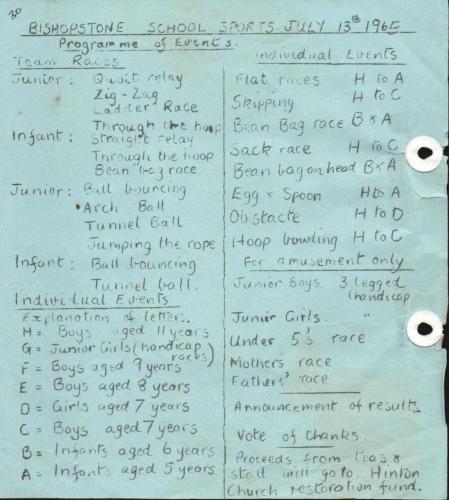 30
BISHOPSTONE SCHOOL SPORTS JULY 13th 1965
Programme of Events.
Team Races
Junior: Quoit relay
Zig-Zag
Ladder Race
Through the hoop
Infant: Straight relay
Through the hoop
Bean bag race
Junior: Ball bouncing
Arch Ball
Tunnel Ball
Jumping the rope
Infant: Ball bouncing
Tunnel ball.
Individual Events
Explanation of letters.
H = Boys aged 11 years
G = Junior Girls (handicap races)
F = Boys aged 9 years
E = Boys aged 8 years
D = Girls aged 7 years
C = Boys aged 7 years
B = Infants aged 6 years
A = Infants aged 5 years.
Individual Events
Flat races H to A
Skipping H to C
Bean Bag race B & A
Sack race H to C
Bean bag on head B & A
Egg & Spoon H to A
Obstacle H to D
Hoop bowling H to C
For amusement only
Junior Boys. 3 legged
(handicap
Junior Girls. "
Under 5's race
Mothers' race
Fathers' race
Announcement of results.
Vote of thanks.
Proceeds from teas &
stall will go to Hinton
Church restoration fund.